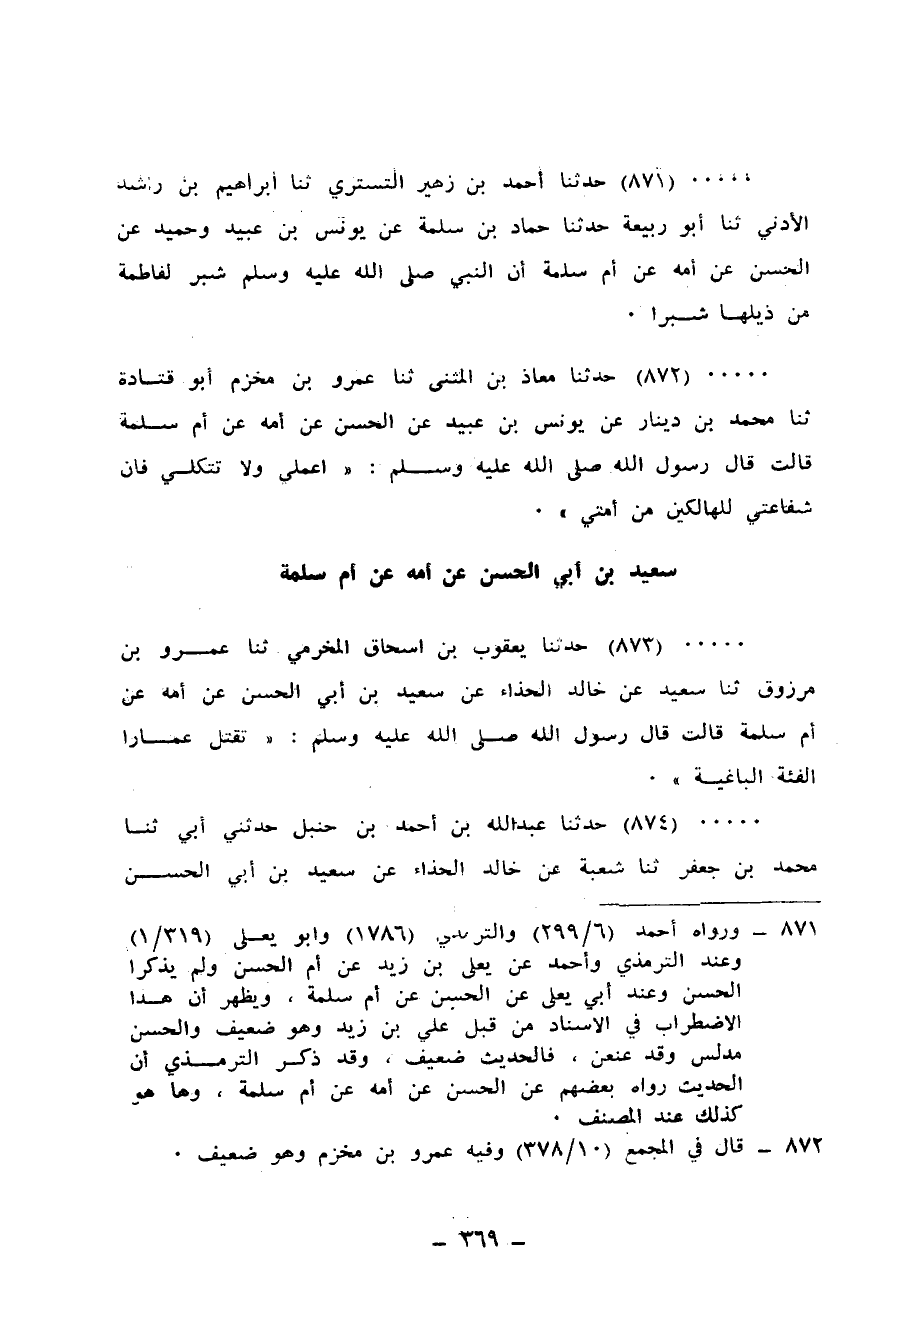 ٠٠٠٠٠ (٨٧١) حدثنا أحمد بن زهير التستري ثنا أبراهيم بن راشد
الأدني ثنا أبو ربيعة حدثنا حماد بن سلمة عن يونس بن عبيد وحميد عن
الحسن عن أمه عن أم سلمة أن النبي صلى الله عليه وسلم شبر لفاطمة
من ذيلهـا شـــبرا ٠
٠٠٠٠٠ (٨٧٢) حدثنا معاذ بن المثنى ثنا عمرو بن مخزم أبو قتــادة
ثنا محمد بن دينار عن يونس بن عبيد عن الحسن عن أمه عن أم ســلمة
قالت قال رسول الله صلى الله عليه وســـلم : « اعملي ولا تتكلــي فان
شفاعتي للهالكين من أمتي » ٠
سعيد بن أبي الحسن عن أمه عن أم سلمة
٠٠٠٠٠ (٨٧٣) حدثنا يعقوب بن اسحاق المخرمي ثنا عمـــرو بن
مرزوق ثنا سعيد عن خالد الحذاء عن سعيد بن أبي الحسن عن أمه عن
أم سلمة قالت قال رسول الله صــلى الله عليه وسلم : « تقتل عمــارا
الفئة الباغيــة » ٠
٠٠٠٠٠ (٨٧٤) حدثنا عبدالله بن أحمد بن حنبل حدثني أبي ثنــا
محمد بن جعفر ثنا شعبة عن خالد الحذاء عن سعيد بن أبي الحســـن
٨٧١ ـ ورواه أحمد (٢٩٩/٦) والترمذي (١٧٨٦) وابو يعــلى (١/٣١٩)
وعند الترمذي وأحمد عن يعلى بن زيد عن أم الحسن ولم يذكرا
الحسن وعند أبي يعلى عن الحسن عن أم سلمة ، ويظهر أن هــذا
الاضطراب في الاسناد من قبل علي بن زيد وهو ضعيف والحسن
مدلس وقد عنعن ، فالحديث ضعيف ، وقد ذكــر الترمــذي أن
الحديث رواه بعضهم عن الحسن عن أمه عن أم سلمة ، وها هو
كذلك عند المصنف ٠
٨٧٢ ـ قال في المجمع (٣٧٨/١٠) وفيه عمرو بن مخزم وهو ضعيف ٠
ـ ٣٦٩ ـ